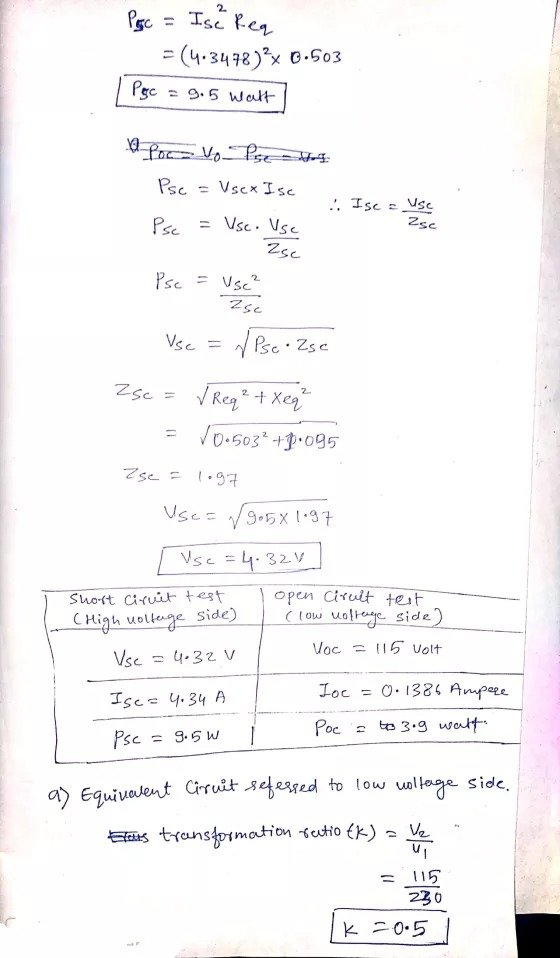 Psc = Isc² Req
= (4.3478)² × 0.503
Psc = 9.5 Watt
Psc = Vsc × Isc
∴ Isc = Vsc/Zsc
Psc = Vsc · Vsc/Zsc
Psc = Vsc²/Zsc
Vsc = √(Psc · Zsc)
Zsc = √(Req² + Xeq²)
= √(0.503² + 1.095)
Zsc = 1.97
Vsc = √(9.5 × 1.97)
Vsc = 4.32 V
Short Ciruit test | Open Ciruit test
(High voltage side) | (low voltage side)
Vsc = 4.32 V | Voc = 115 Volt
Isc = 4.34 A | Ioc = 0.1386 Ampere
Psc = 9.5 W | Poc = 3.9 watt.
a) Equivalent Ciruit referred to low voltage side.
transformation ratio (k) = V2/V1
= 115/230
k = 0.5